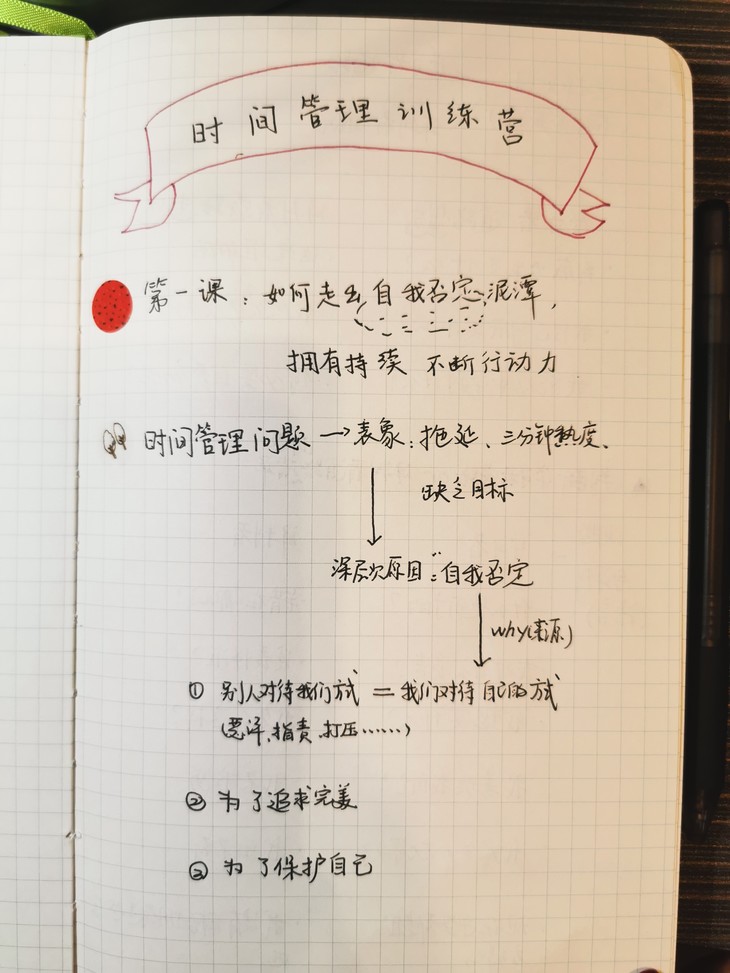 时间管理训练营
第一课：如何走出自我否定泥潭，
拥有持续不断行动力
时间管理问题→表象：拖延、三分钟热度、
缺乏目标
深层次原因：自我否定
why(来源)
① 别人对待我们方式 = 我们对待自己的方式
(批评、指责、打压……)
② 为了追求完美
③ 为了保护自己